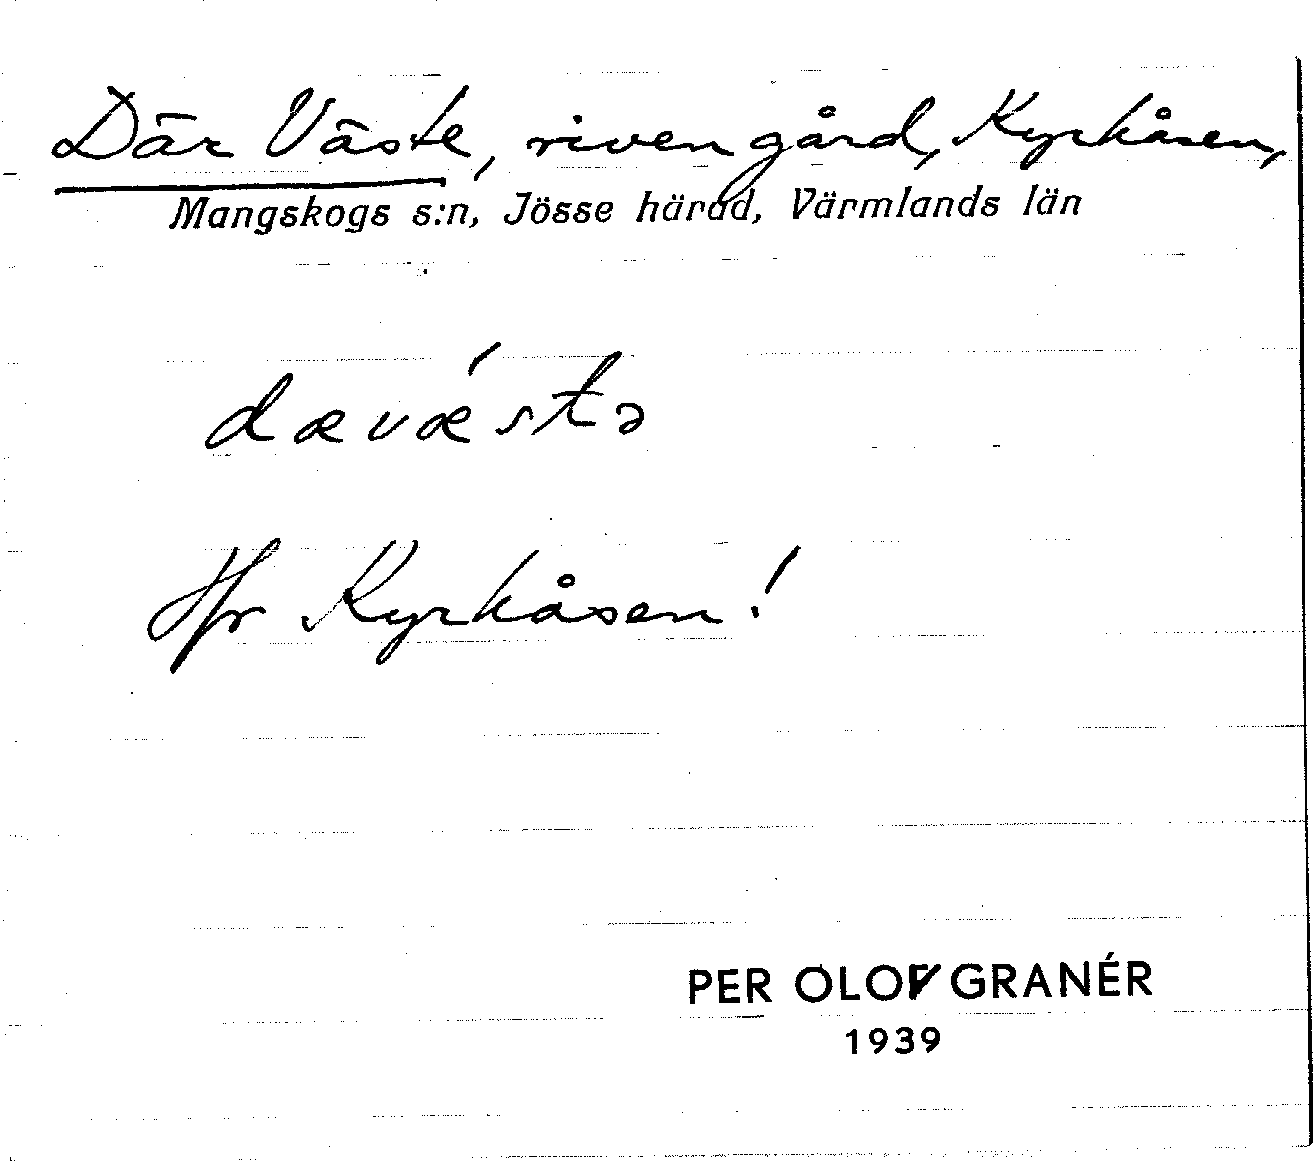 Där Väste, riven gård, Kyrkåsen,
Mangskogs s:n, Jösse härad, Värmlands län
dævǽstə
Hfr Kyrkåsen!
PER OLOF GRANÉR
1939